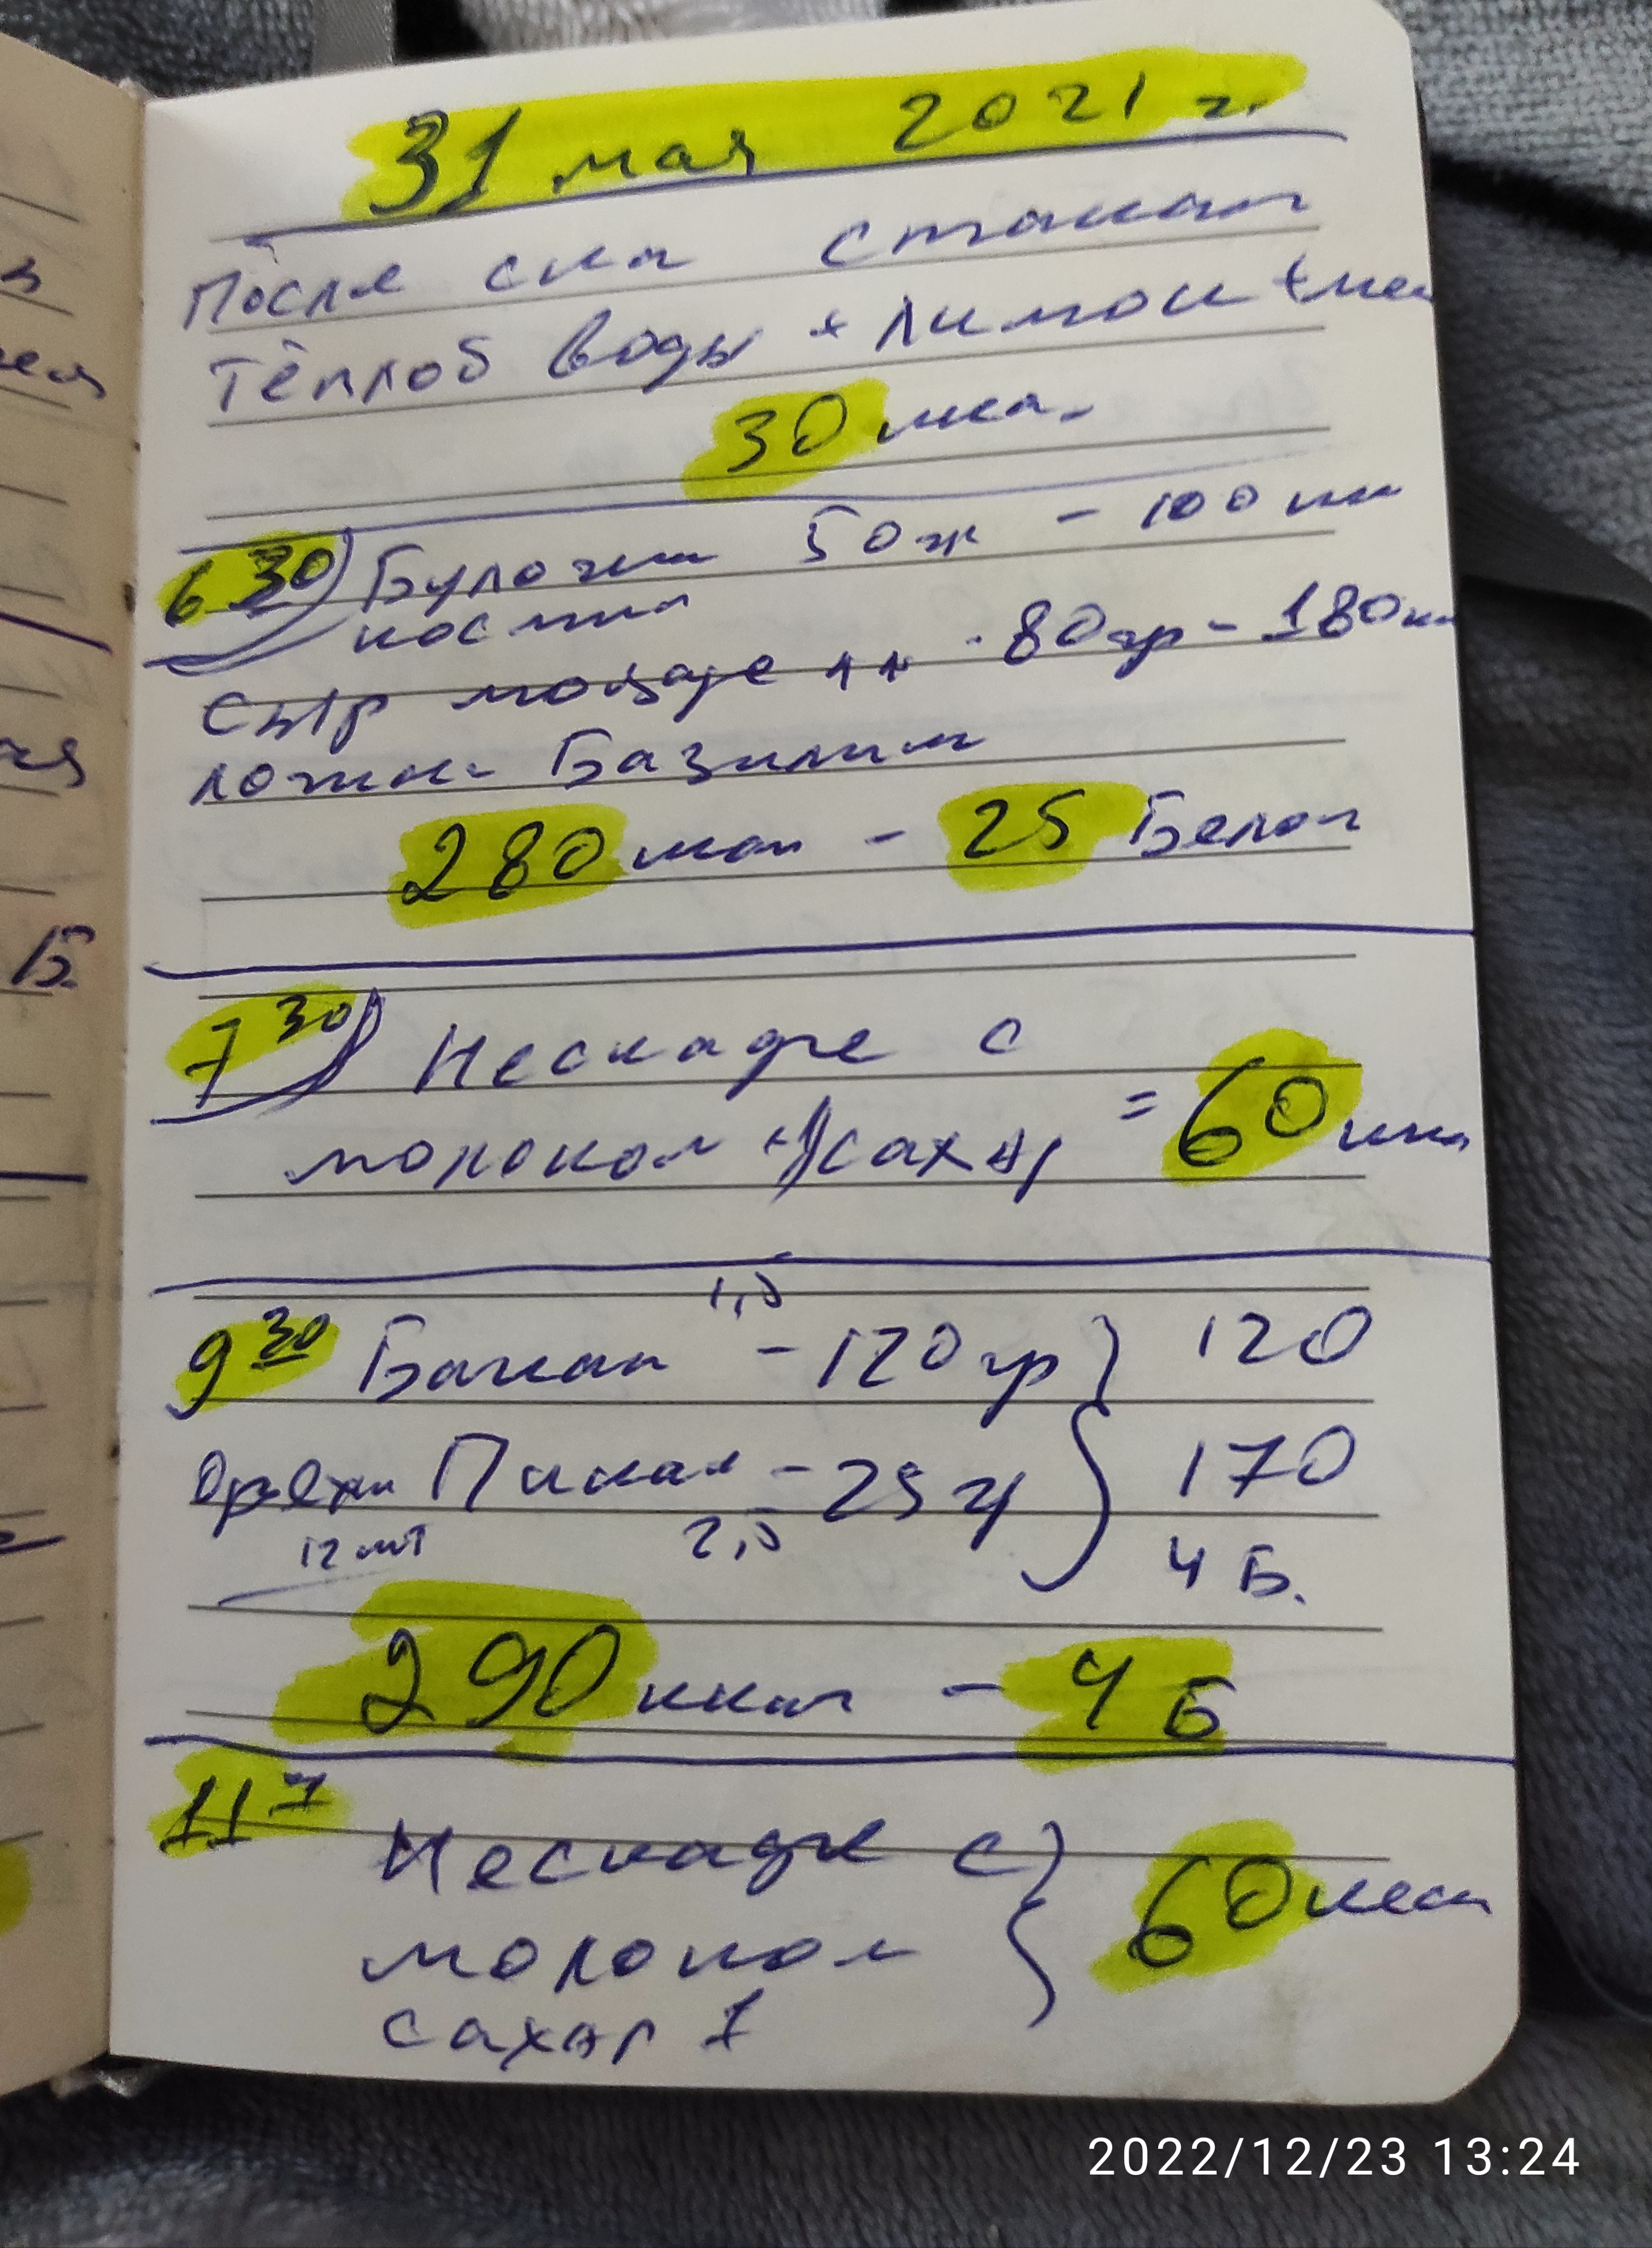 31 мая 2021 г.
После сна стакан
тёплой воды + лимон + мед
30 ккал
6 30 Булочка 50 гр - 100 ккал
Сыр моцарелла 80 гр - 180 ккал
ложка Базилик
280 ккал - 25 Белок
7 30 Нескафе с
молоком + 1 сахар = 60 ккал
1,5
9 30 Банан - 120 гр 120
Орехи Пикан - 25 гр 170
12 шт 2,5 4 Б.
290 ккал - 4 Б
11 Нескафе с
молоком 60 ккал
сахар 1
Б.
2022/12/23 13:24